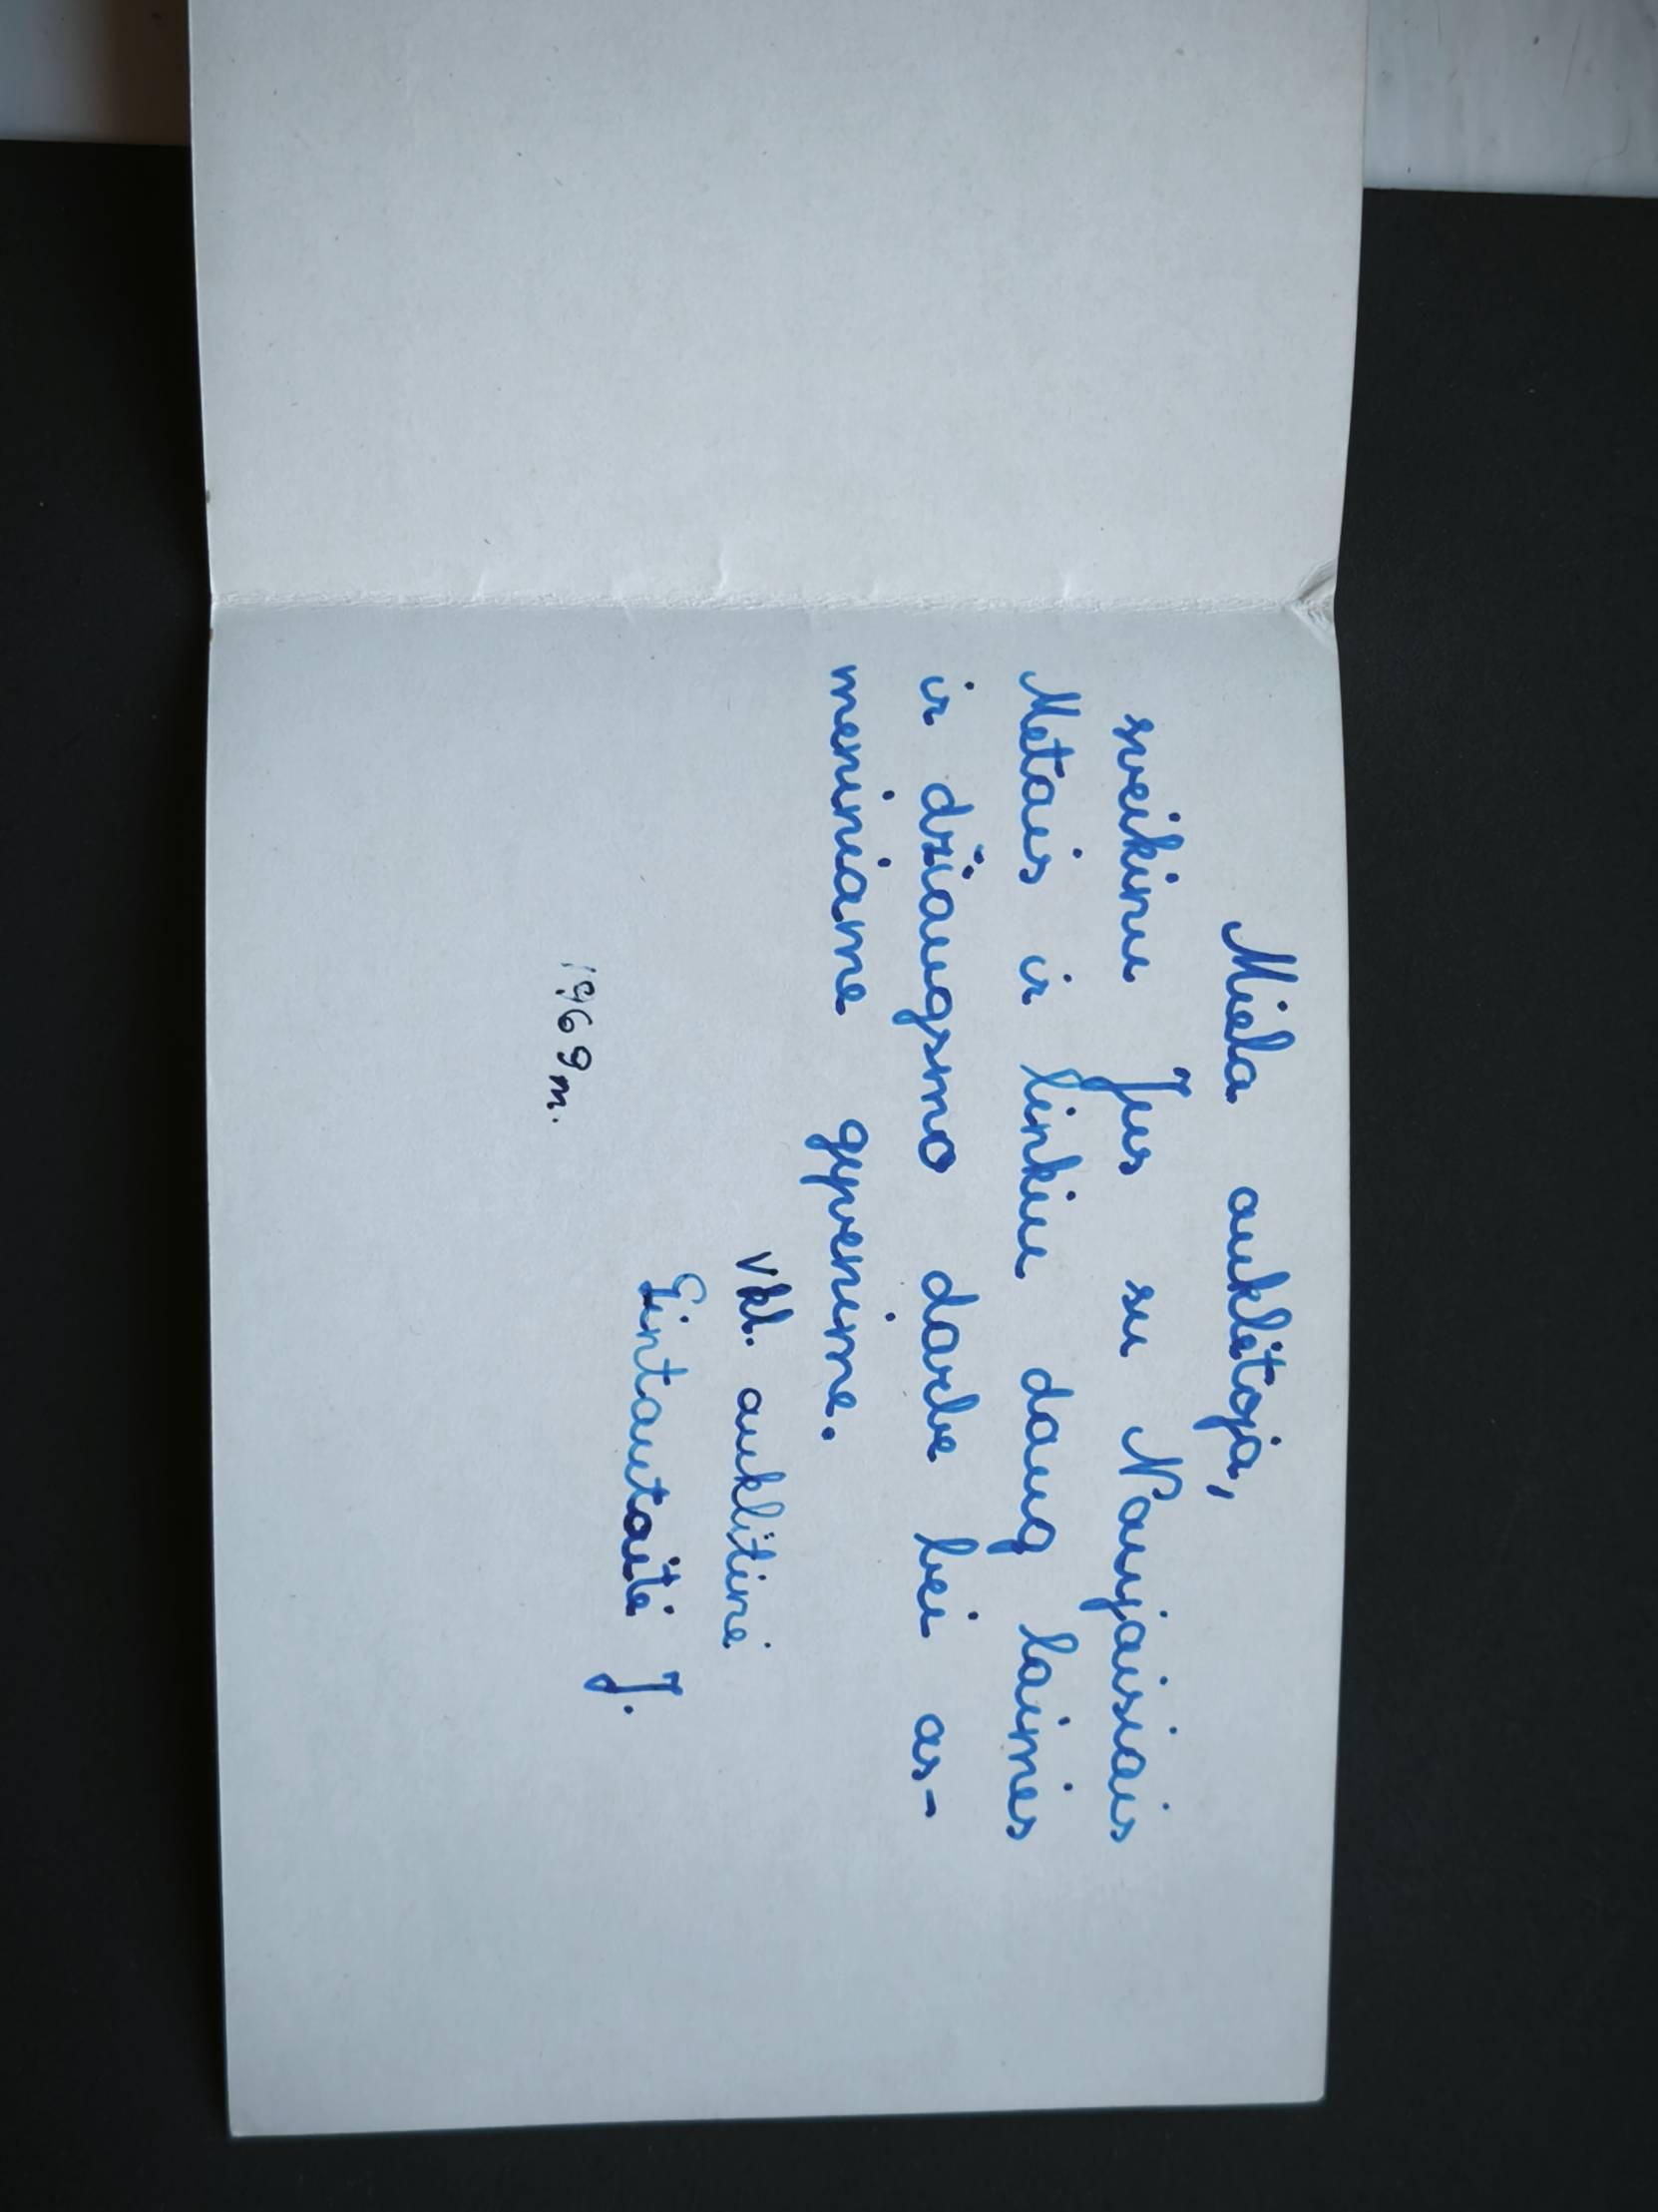 Miela auklėtoja,
sveikinu Jus su Naujaisiais
Metais ir linkiu daug laimės
ir džiaugsmo darbe bei as-
meniniame gyvenime.
Vkl. auklėtinė
Gintautaitė J.
1969 m.